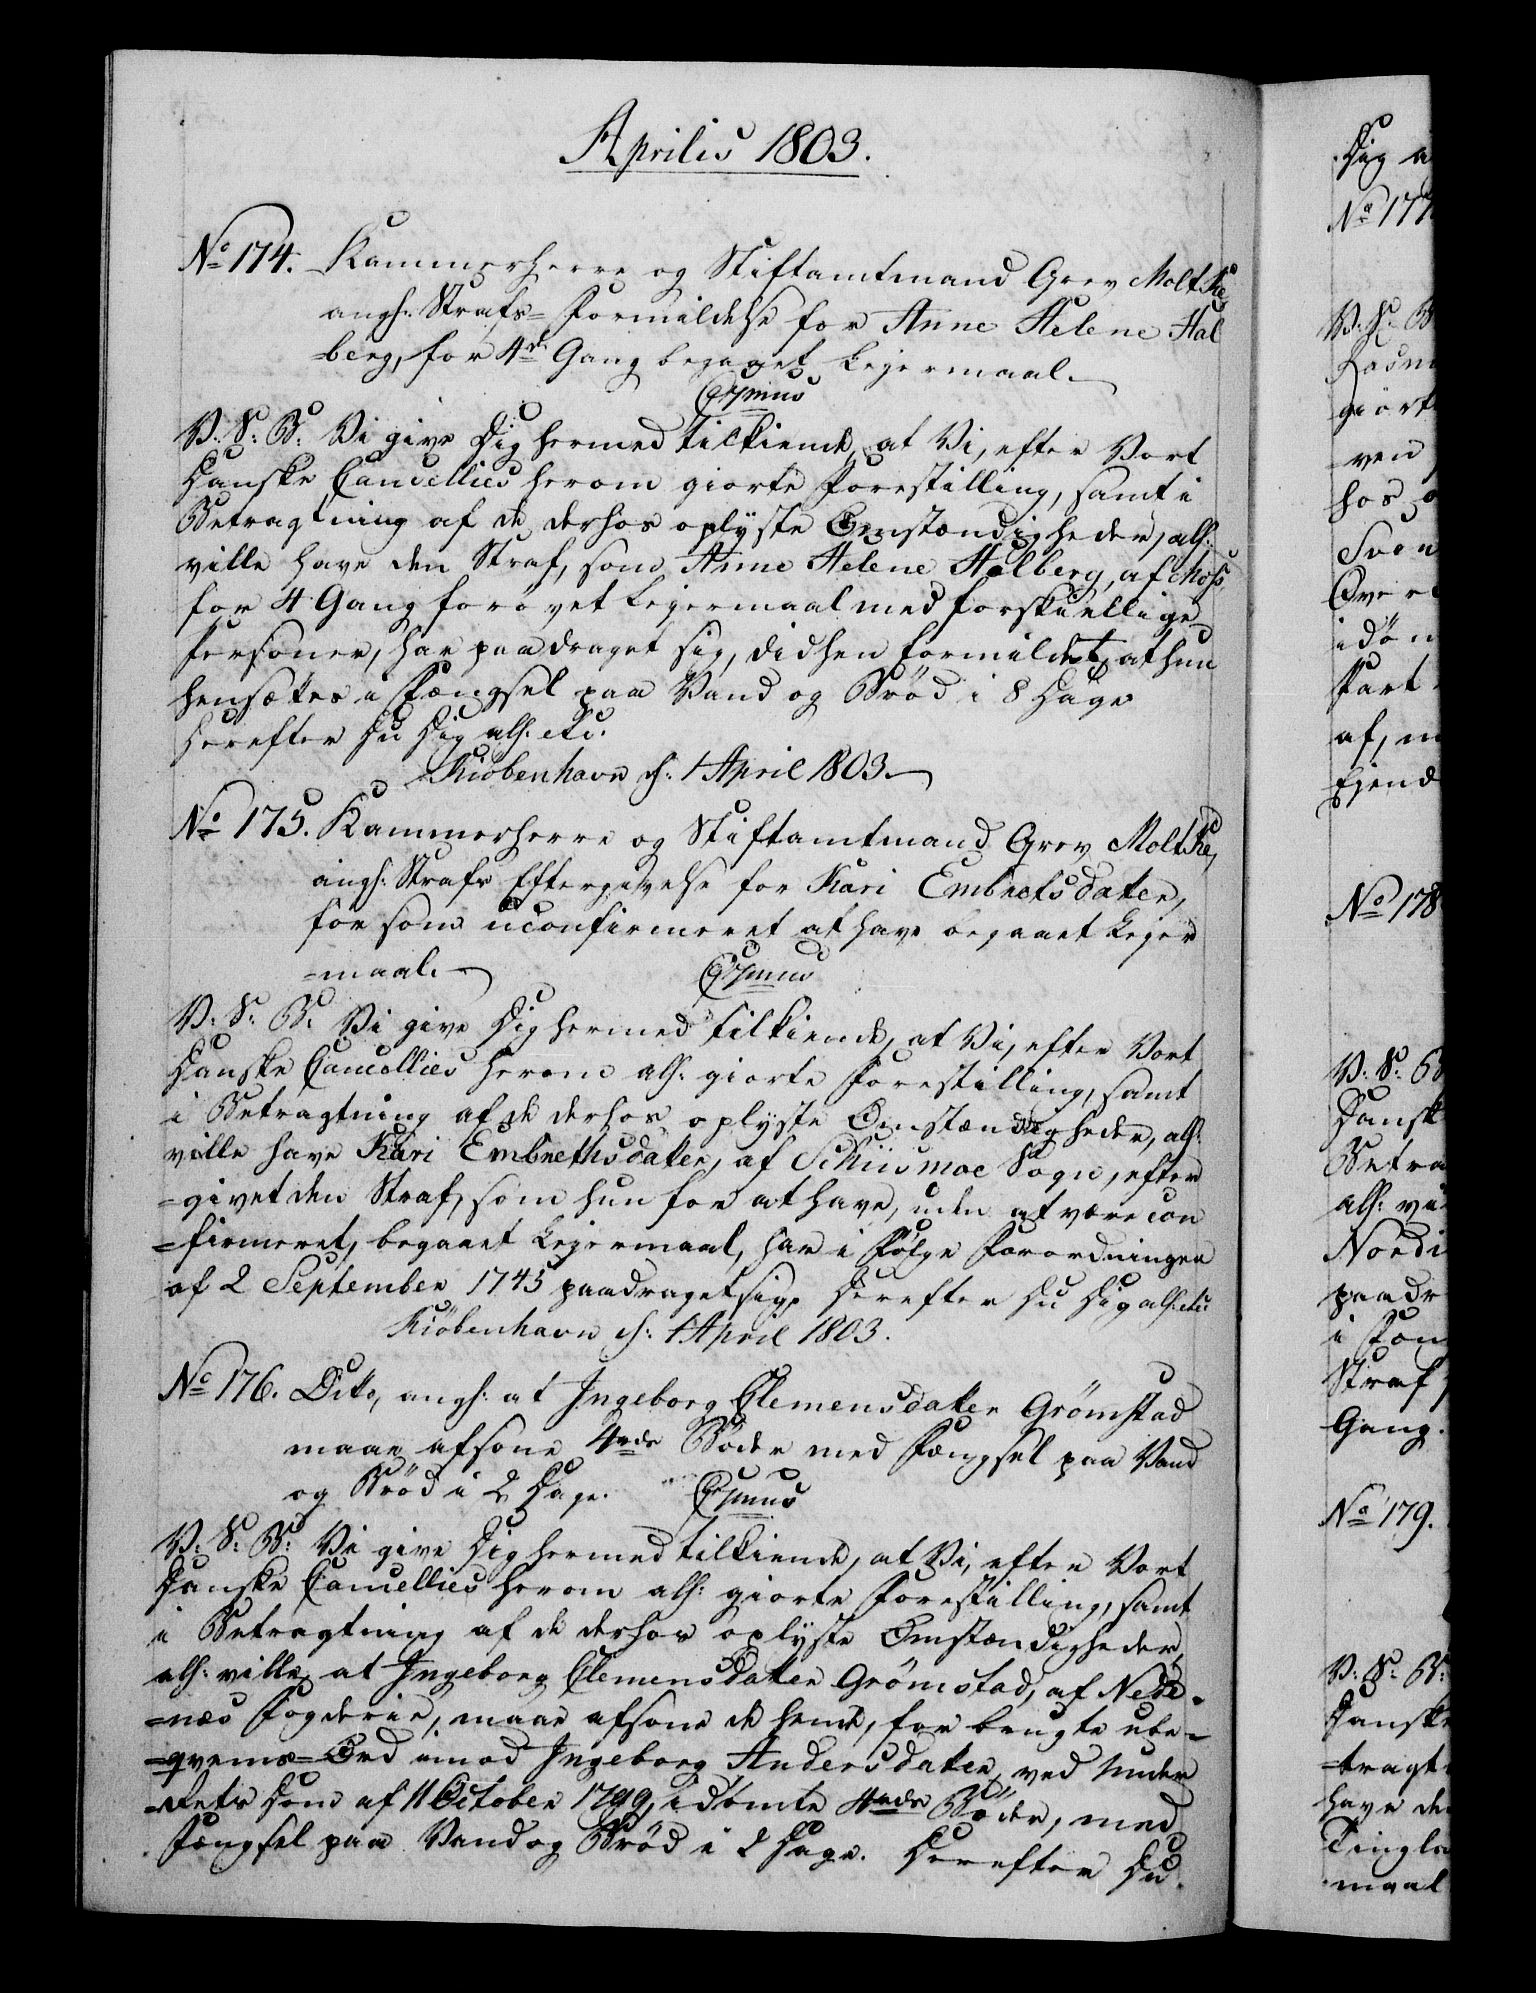 Aprilis 1803.
No 174. Kammerherre og Stiftamtmand Grev Moltke,
angl: Strafs-Formildelse for Anne Helene Hal
-berg, for 4de Gang begaaet Lejermaal.
V: S: B: Vi give Dig hermed tilkiende, at Vi, efter Vort
Danske Cancellies herom giorte Forestilling, samt i
Betragtning af de derhos oplyste Omstændigheder, alh:
ville have den Straf, som Anne Helene Halberg, af Moss,
for 4 Gang forøvet Lejermaal med forskiellige
Personer, har paadraget sig, didhen formildet, at hun
hensættes i Fængsel paa Vand og Brød i 8 Dage
Derefter Du Dig alh: etc:
Kiöbenhavn d: 1 April 1803.
No 175. Kammerherre og Stiftamtmand Grev Moltke,
angl: Strafs Eftergivelse for Kari Embretsdatter,
for som uconfirmeret at have begaaet Lejer
-maal.
V: S: B: Vi give Dig hermed tilkiende, at Vi, efter Vort
Danske Cancellies herom alh: giorte Forestilling, samt
i Betragtning af de derhos oplyste Omstændigheder, alh:
ville have Kari Embrethsdatter, af Schiismoe Sogn, efter
-givet den Straf, som hun for at have, uden at være con
-firmeret, begaaet Lejermaal, har i Følge Forordningen
af 2 September 1745 paadraget sig. Derefter Du Dig alh: etc
Kiöbenhavn d: 1 April 1803.
No 176. Dito, angl: at Ingeborg Clemensdatter Grömstad
maae afsone 4 rds Bøder med Fængsel paa Vand
og Brød i 2 Dage.
V: S: B: Vi give Dig hermed tilkiende, at Vi, efter Vort
Danske Cancellies herom alh: giorte Forestilling, samt
i Betragtning af de derhos oplyste Omstændigheder,
alh: ville, at Ingeborg Clemensdatter Grömstad, af Nede-
-næs Fogderie, maae afsone de hende, for brugte ube-
-qvems-Ord imod Ingeborg Andersdatter, ved Under
-Rets Dom af 11 October 1799, idömte 4 rds Bøder, med
Fængsel paa Vand og Brød i 2 Dage. Derefter Du
Dig a
No 177
V: S: B
Rasm
giort
ven
hos
Svon
Øvre
idöm
Part
af, m
Ejend
No 178
V: S: B
Dansk
Betra
alh: vi
Nordi
paadr
i Fon
Straf
Gang.
No 179.
V: S: B:
Danske
-tragt
have de
Tingla
maal